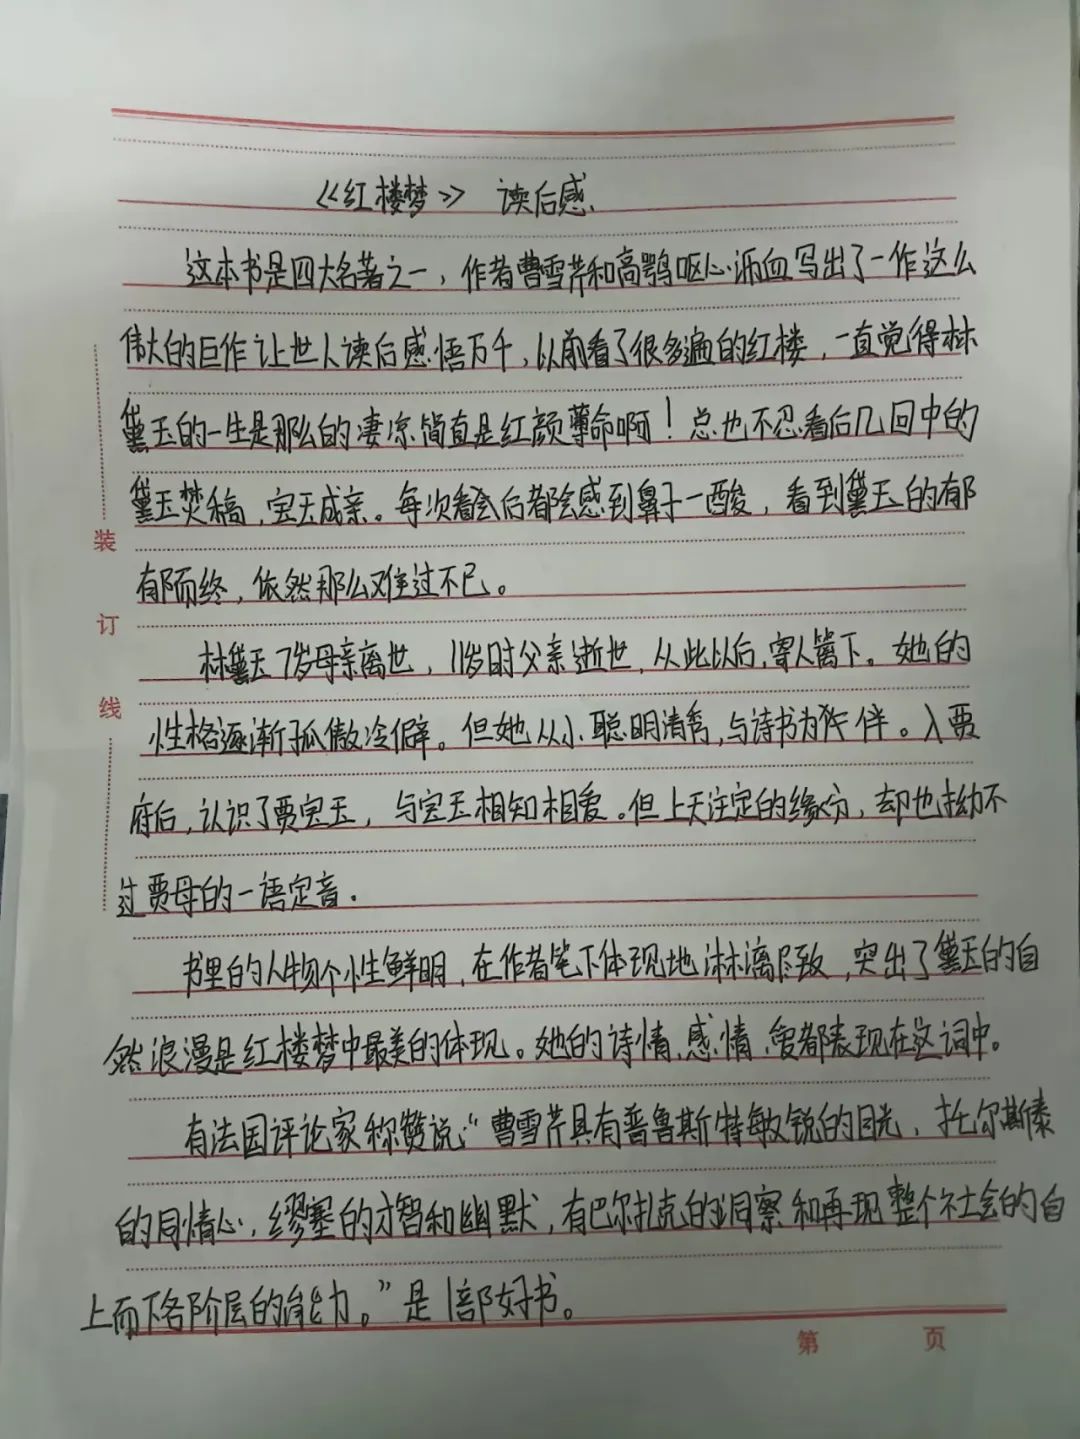 《红楼梦》 读后感.
这本书是四大名著之一，作者曹雪芹和高鹗呕心沥血写出了一作这么
伟大的巨作让世人读后感悟万千，以前看了很多遍的红楼，一直觉得林
黛玉的一生是那么的凄凉简直是红颜薄命啊！总也不忍看后几回中的
黛玉焚稿，宝玉成亲。每次看会后都会感到鼻子一酸，看到黛玉的郁
郁而终，依然那么难过不已。
装
订
线
林黛玉7岁母亲离世，11岁时父亲逝世，从此以后，寄人篱下。她的
性格逐渐孤傲冷僻。但她从小聪明清秀，与诗书为伴。入贾
府后，认识了贾宝玉，与宝玉相知相爱。但上天注定的缘分，却也拗不
过贾母的一语定音.
书里的人物个性鲜明，在作者笔下体现地淋漓尽致，突出了黛玉的自
然浪漫是红楼梦中最美的体现。她的诗情、感情、都表现在这词中。
有法国评论家称赞说：“曹雪芹具有普鲁斯特敏锐的目光，托尔斯泰
的同情心，缪塞的才智和幽默，有巴尔扎克的洞察和再现整个社会的自
上而下各阶层的能力。”是1部好书。
第 页